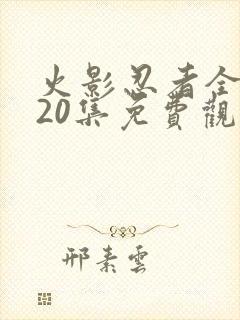 火影忍者全
20集免費觀
邢素雲